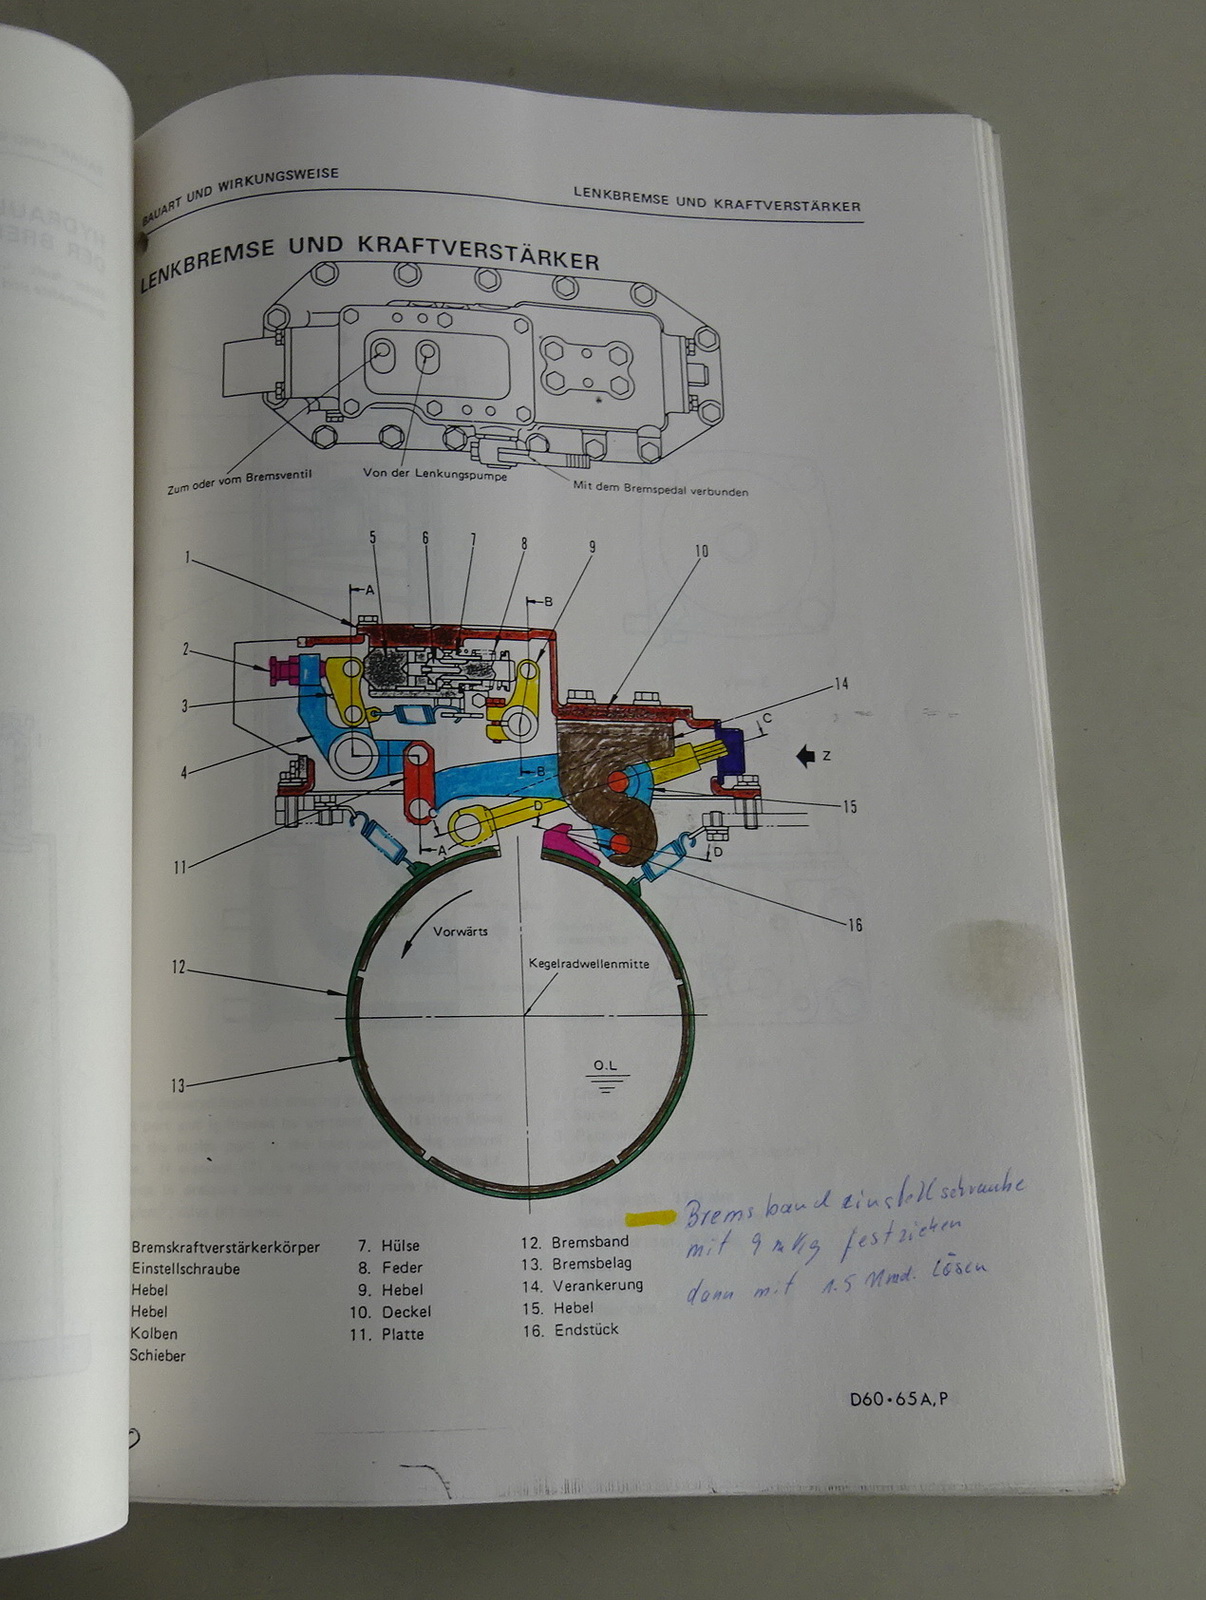 BAUART UND WIRKUNGSWEISE
LENKBREMSE UND KRAFTVERSTÄRKER
LENKBREMSE UND KRAFTVERSTÄRKER
Zum oder vom Bremsventil
Von der Lenkungspumpe
Mit dem Bremspedal verbunden
1
5
6
7
8
9
10
A
B
2
3
4
14
C
Z
B
D
15
C
A
D
11
16
Vorwärts
12
Kegelradwellenmitte
O.L
13
Bremskraftverstärkerkörper
Einstellschraube
Hebel
Hebel
Kolben
Schieber
7. Hülse
8. Feder
9. Hebel
10. Deckel
11. Platte
12. Bremsband
13. Bremsbelag
14. Verankerung
15. Hebel
16. Endstück
Bremsband einstellschraube
mit 9 mkg festziehen
dann mit 1.5 Umd. lösen
D60·65A,P